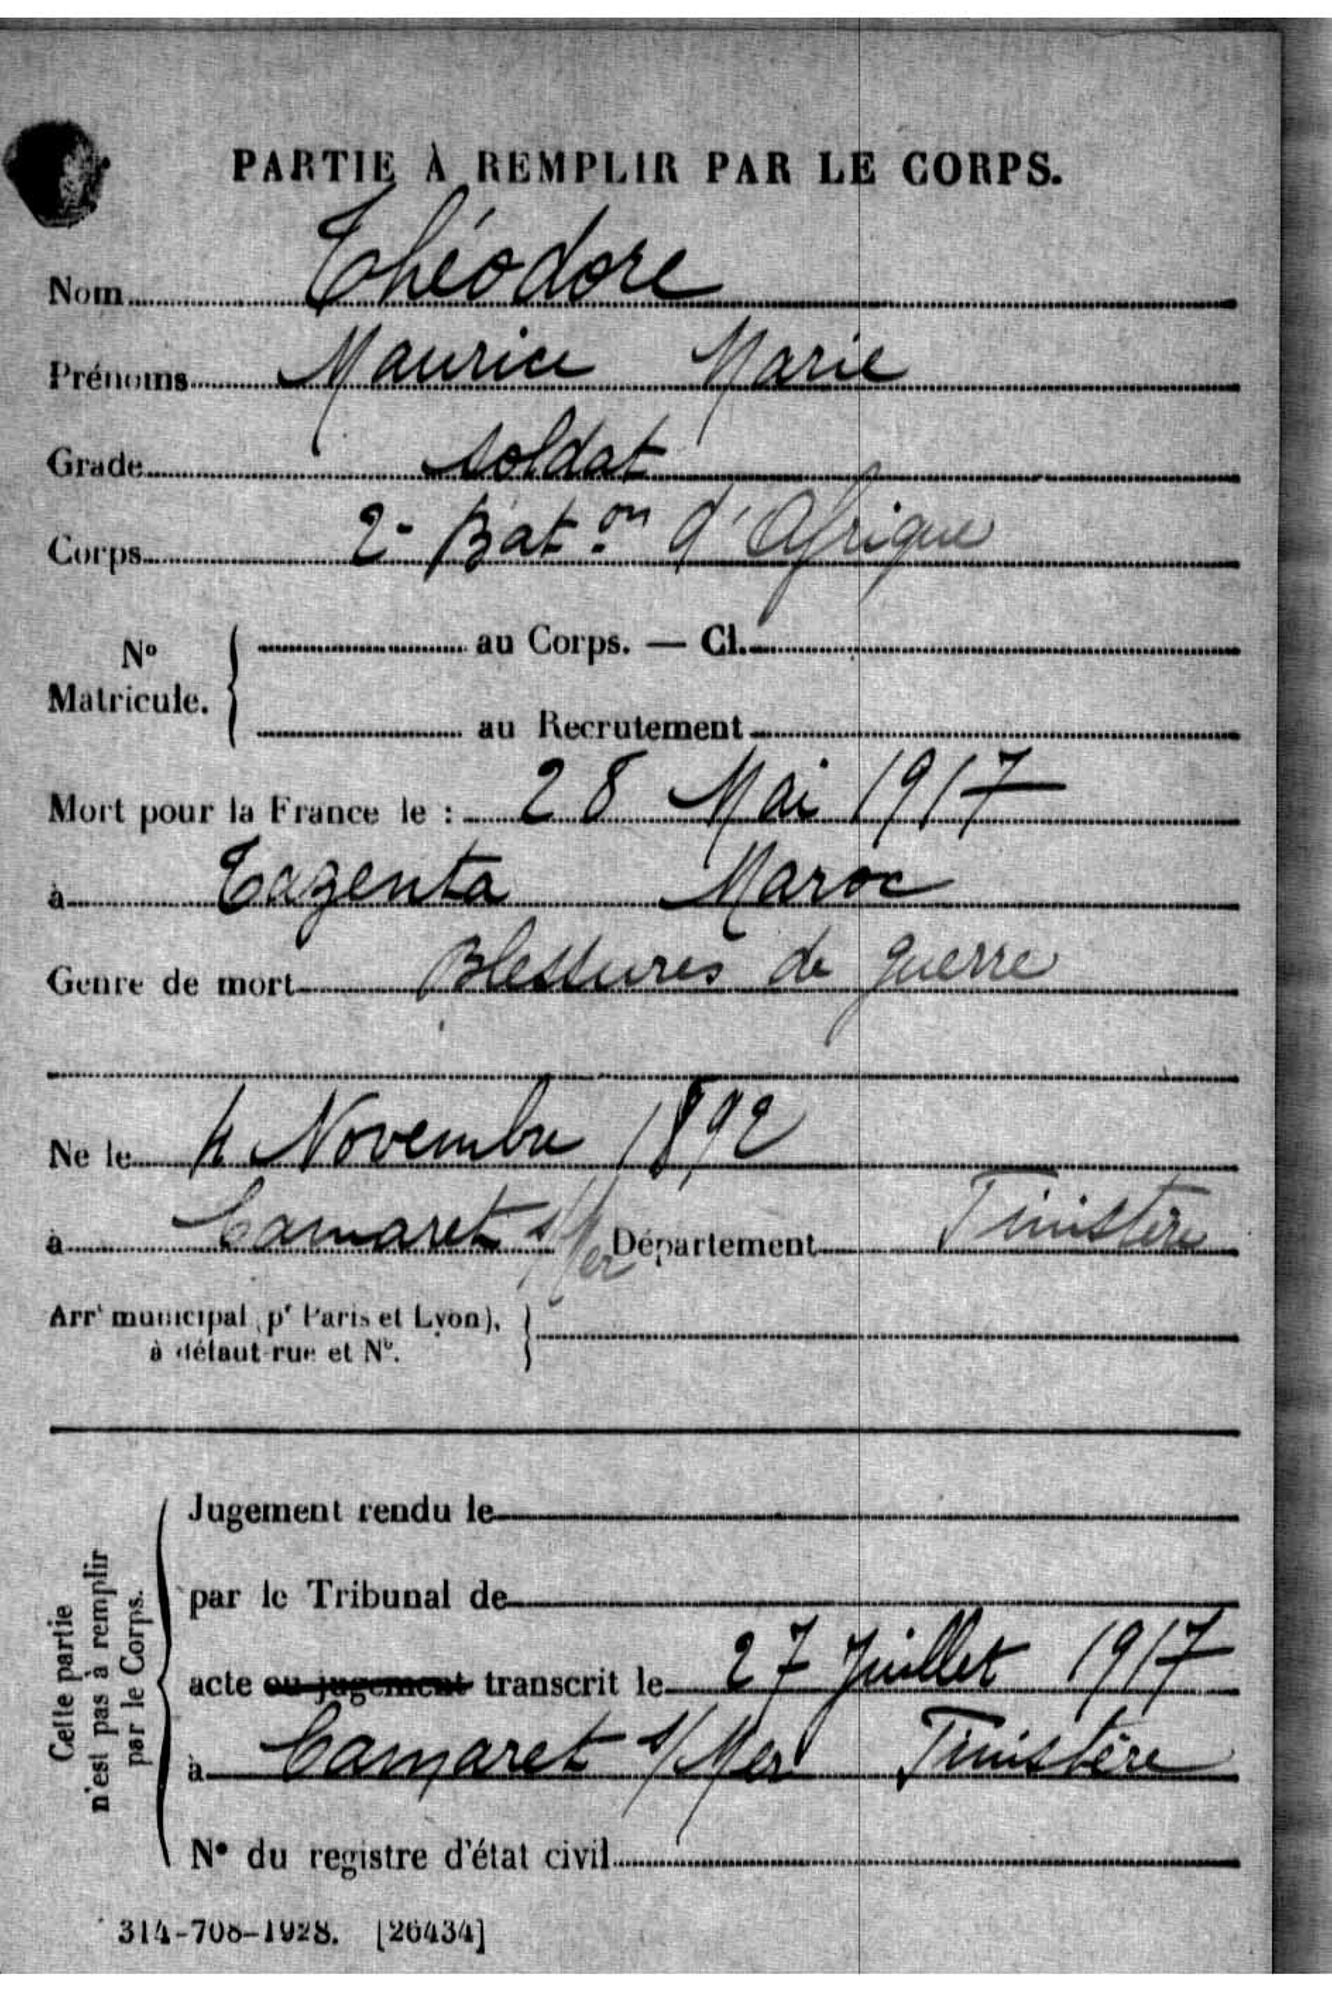 PARTIE À REMPLIR PAR LE CORPS.
Nom Théodore
Prénoms Maurice Marie
Grade soldat
Corps 2e Bat.on d'Afrique
N° Matricule. { au Corps. — Cl.
au Recrutement
Mort pour la France le : 28 Mai 1917
à Tazenta Maroc
Genre de mort Blessures de guerre
Né le 4 Novembre 1892
à Camaret s/Mer Département Finistère
Arrt municipal (pr Paris et Lyon),
à défaut rue et N°.
Cette partie
n'est pas à remplir
par le Corps.
Jugement rendu le
par le Tribunal de
acte ou jugement transcrit le 27 Juillet 1917
à Camaret s/Mer Finistère
N° du registre d'état civil
314-708-1928. [26434]